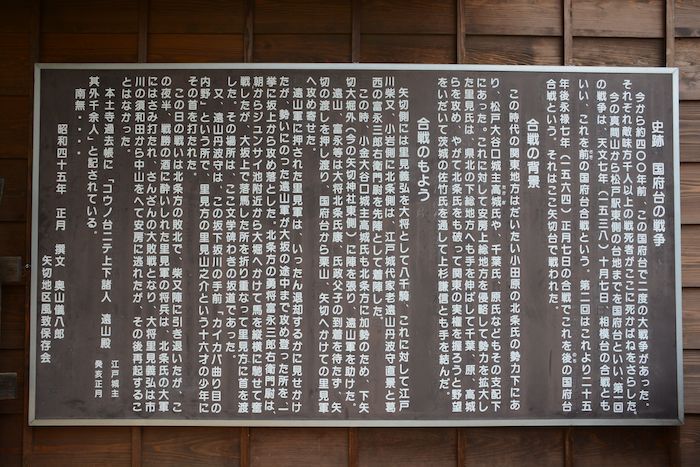 史跡　国府台の戦争
今から約四〇〇年前、この国府台で二度の大戦争があった。
それぞれ敵味方千人以上の戦死者がここに死かばねをさらした。
今の真間山から松戸駅東側の台地までを国府台といい、第一回
の戦争は、天文七年（一五三八）十月七日、相模台の合戦とも
いい、これを前の国府台合戦という。第二回はこれより二十五
年後永禄七年（一五六四）正月七日の合戦でこれを後の国府台
合戦という。それはここ矢切台で戦われた。
合戦の背景
この時代の関東地方はだいたい小田原の北条氏の勢力下にあ
り、松戸大谷口城主高城氏や、千葉氏、原氏などもその支配下
にあった。これに対して安房上総地方を侵略して勢力を拡大し
た里見氏は、県北の下総地方へも手を伸ばして千葉、原、高城
らを攻め、やがて北条氏をも破って関東の実権を握ろうと野望
をいだいて茨城の佐竹氏を通して上杉謙信とも手を結んだ。
合戦のもよう
矢切側には里見義弘を大将として八千騎、これに対して江戸
川柴又、小岩側に北条側は、江戸城代家老遠山丹波守直景と葛
西の富永三郎右衛門尉を先陣として着陣した。
この時、小金大谷口城主高城氏は、北条方に加勢のため、下矢
切大堀外（今の矢切神社東側）に陣を張り、遠山軍を助けた。
遠山、富永等は大将北条氏康、氏政父子の到着を待たず、矢
切の渡しを押し渡り、国府台から栗山、矢切へかけての里見軍
へ攻め寄せた。
遠山軍に押された里見軍は、いったん退却するかに見せかけ
たが、勢いにのった遠山軍が大坂の途中まで攻め登った所を、一
挙に坂上から攻め落とした。北条方の勇将富永三郎右衛門尉は、
朝からジュンサイ池附近から大堀へかけて馬を縦横に馳せて奮
戦したが、大坂上で落馬した所を折り重なって里見方に首を渡
した。その場所は、ここ文学碑わきの坂道であった。
又、遠山丹波守は、この坂下坂川の手前「カイカバ曲り目の
内野」という所で、里見方の里見山之介という十六才の少年に
その首を打たれた。
この日の戦いは北条方の敗北で、柴又陣に引き退いたが、こ
の夜半、戦勝の酒に酔いしれた里見軍の将兵は、北条氏の大軍
にはさみ打たれ、さんざんの大敗戦となり、大将里見義弘は市
川の須和田から中山をへて安房に逃れたが、その後再起するこ
とはなかった。
本土寺過去帳に「コウノ台ニテ上下諸人　遠山殿　江戸城主　癸亥正月
其外千余人」と記されている。
南無・・・・
昭和四十五年　正月　撰文　奥山儀八郎
矢切地区風致保存会